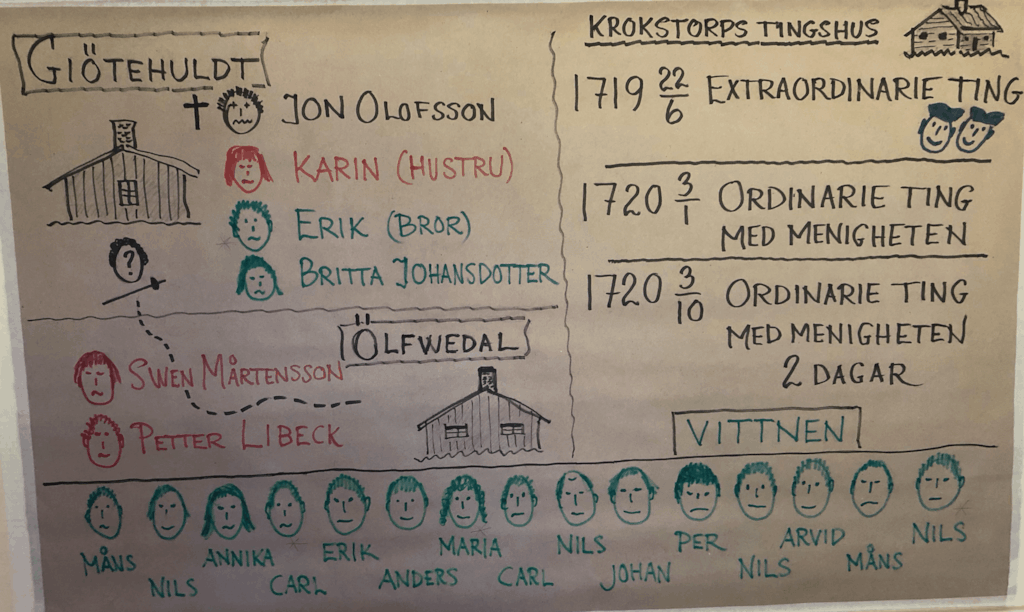 GIÖTEHULDT
JON OLOFSSON
KARIN (HUSTRU)
ERIK (BROR)
BRITTA JOHANSDOTTER
?
ÖLFWEDAL
SWEN MÅRTENSSON
PETTER LIBECK
KROKSTORPS TINGSHUS
1719 22/6 EXTRAORDINARIE TING
1720 3/1 ORDINARIE TING
MED MENIGHETEN
1720 3/10 ORDINARIE TING
MED MENIGHETEN
2 DAGAR
VITTNEN
MÅNS
NILS
ANNIKA
CARL
ERIK
ANDERS
MARIA
CARL
NILS
JOHAN
PER
NILS
ARVID
MÅNS
NILS